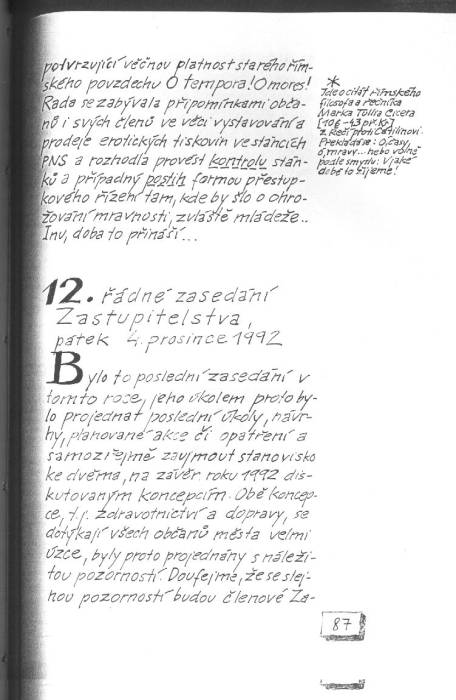 potvrzující věčnou platnost starého řím-
ského povzdechu O tempora! O mores!
Rada se zabývala připomínkami obča-
nů i svých členů ve věci vystavování a
prodeje erotických tiskovin ve stáncích
PNS a rozhodla provést kontrolu stán-
ků a případný postih formou přestup-
kového řízení tam, kde by šlo o ohro-
žování mravnosti, zvláště mládeže..
Inu, doba to přináší...
*
Jde o citát římského
filosofa a řečníka
Marka Tullia Cicera
[106-43 př.Kr.]
z Řeči proti Catilinovi.
Překládáse: Ó časy,
ó mravy... nebo volně
podle smyslu: V jaké
době to žijeme!
12. řádné zasedání
Zastupitelstva,
pátek 4. prosince 1992
Bylo to poslední zasedání v
tomto roce, jeho úkolem proto by-
lo projednat poslední úkoly, návr-
hy, plánované akce či opatření a
samozřejmě zaujmout stanovisko
ke dvěma, na závěr roku 1992 dis-
kutovaným koncepcím. Obě koncep-
ce, t.j. zdravotnictví a dopravy, se
dotýkají všech občanů města velmi
úzce, byly proto projednány s náleži-
tou pozorností. Doufejme, že se stej-
nou pozorností budou členové Za-
87